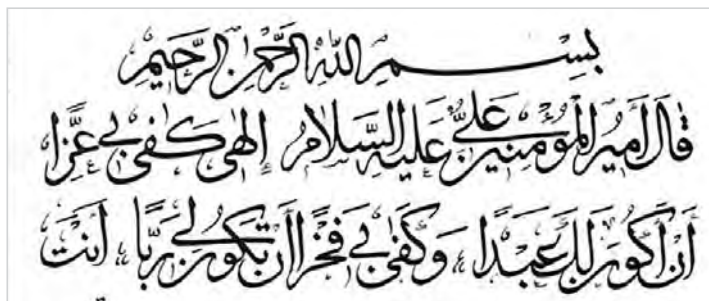 بِسْمِ اللهِ الرَّحْمٰنِ الرَّحِيمِ
قَالَ أَمِيرُ الْمُؤْمِنِينَ عَلِيٌّ عَلَيْهِ السَّلَامُ إِلٰهِي كَفٰى بِي عِزًّا
أَنْ أَكُونَ لَكَ عَبْدًا، وَكَفٰى بِي فَخْرًا أَنْ تَكُونَ لِي رَبًّا، أَنْتَ